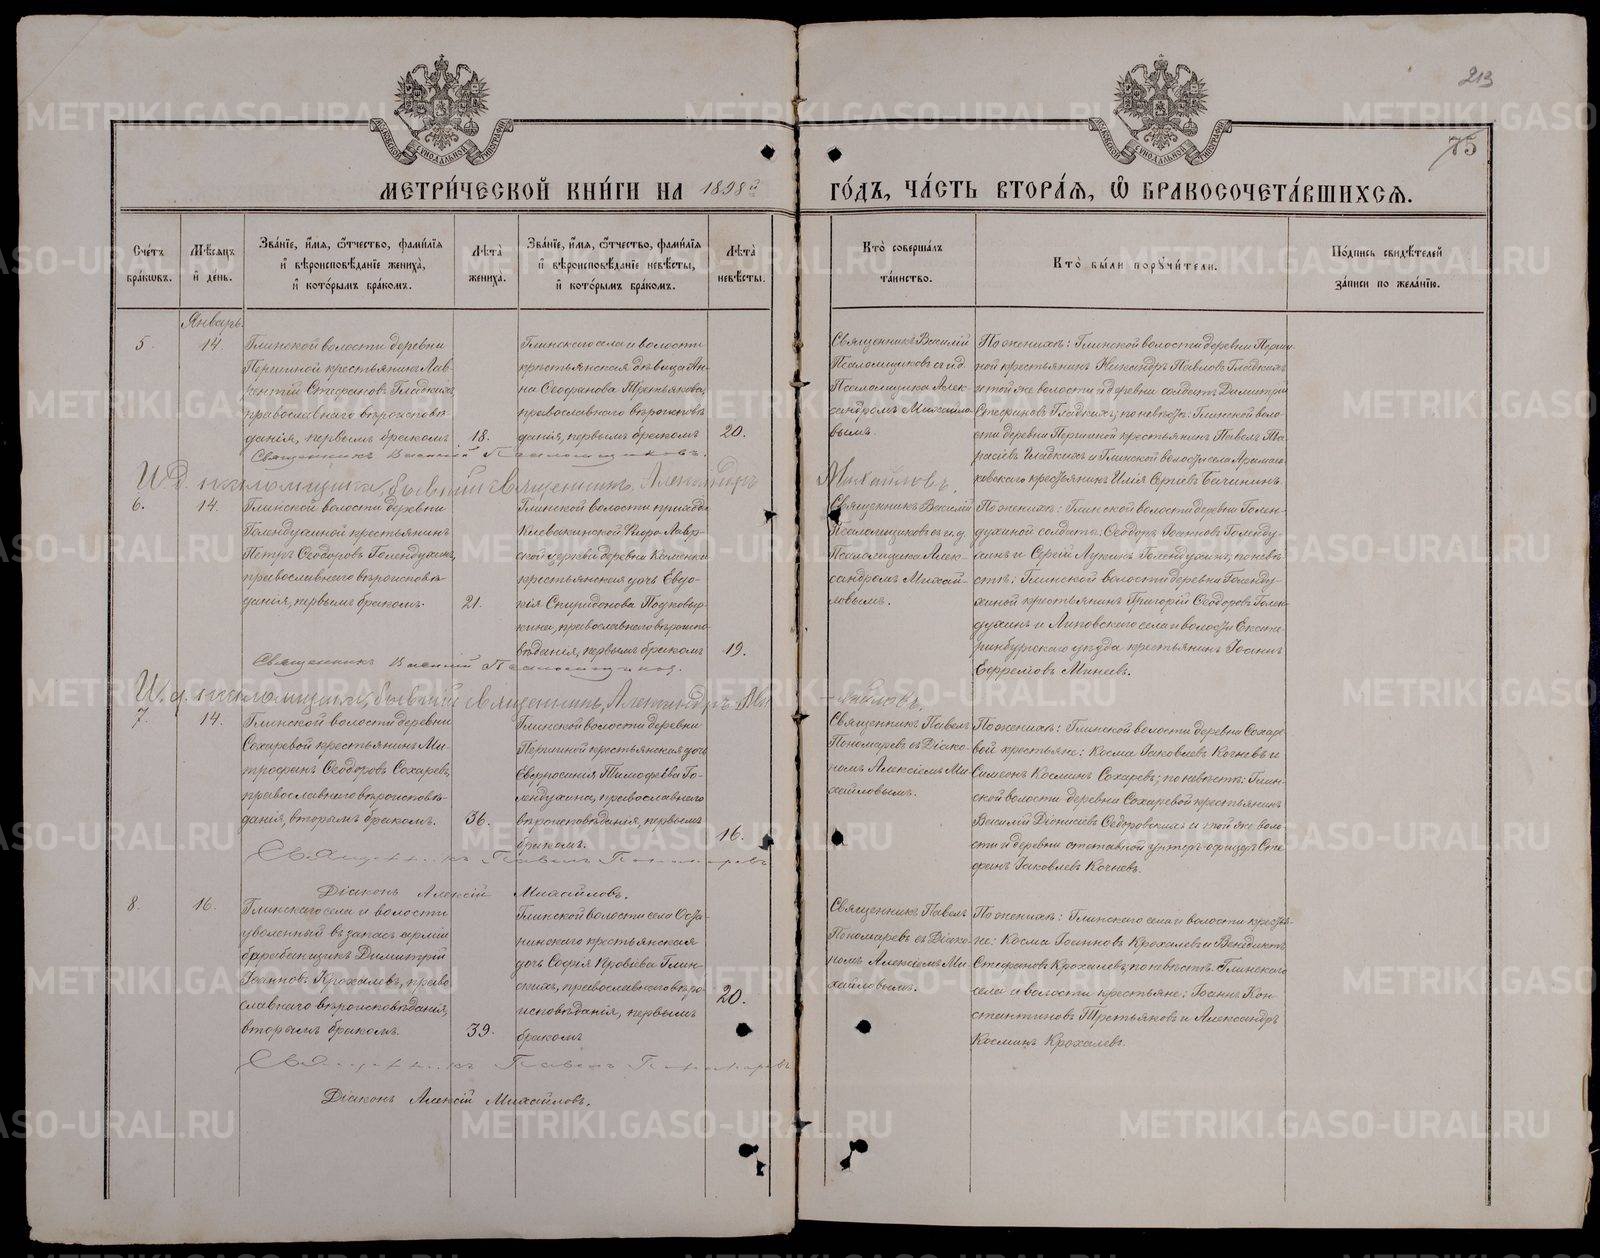 213
75
МЕТРИ́ЧЕСКОЙ КНИ́ГИ НА 1898й ГО́ДЪ, ЧА́СТЬ ВТОРА́Я, Ѽ БРАКОСОЧЕТА́ВШИХСЯ.
Сче́тъ бра́ковъ.
Мѣ́сяцъ и҆ де́нь.
Зва́нїе, и҆́мя, ѻ҆́тчество, фами́лїя и҆ вѣроисповѣ́данїе жениха̀, и҆ кото́рымъ бра́комъ.
Лѣта̀ жениха̀.
Зва́нїе, и҆́мя, ѻ҆́тчество, фами́лїя и҆ вѣроисповѣ́данїе невѣ́сты, и҆ кото́рымъ бра́комъ.
Лѣта̀ невѣ́сты.
Кто̀ соверша́лъ та́инство.
Кто̀ бы́ли порꙋчи́тели.
По́дпись свидѣ́телей за́писи по жела́нїю.
Январь.
5.
14.
Глинской волости деревни
Першиной крестьянинъ Лав-
рентій Стефановъ Гладкихъ,
православнаго вѣроисповѣ-
данія, первымъ бракомъ
18.
Глинскаго села и волости
крестьянская дѣвица Ан-
на Ѳеофанова Третьякова,
православнаго вѣроисповѣ
данія, первымъ бракомъ
20.
Священникъ Василій
Псаломщиковъ съ и.д.
Псаломщика Алек-
сандромъ Михайло-
вымъ.
По женихѣ: Глинской волости деревни Перши-
ной крестьянинъ Павловъ Гладкихъ
и той же волости и деревни солдатъ Димитрій
Стефановъ Гладкихъ; по невѣстѣ: Глинской воло-
сти деревни Першиной крестьянинъ Павелъ Та-
расіевъ Гладкихъ и Глинской волости села Арамаш-
ковскаго крестьянинъ Илія Сергіевъ Бачининъ.
Священникъ Василій Псаломщиковъ.
И.д. псаломщика, бывшій священникъ, Александръ Михайловъ.
6.
14.
Глинской волости деревни
Голендухиной крестьянинъ
Петръ Ѳеодоровъ Голендухинъ,
православнаго вѣроисповѣ-
данія, первымъ бракомъ.
21.
Глинской волости прихода
Клевакинской Флоро-Лавр-
ской церкви деревни Каменки
крестьянская дочь Евдо-
кія Спиридонова Подковыр-
кина, православнаго вѣроиспо-
вѣданія, первымъ бракомъ
19.
Священникъ Василій
Псаломщиковъ съ и.д.
Псаломщика Алек-
сандромъ Михай-
ловымъ.
По женихѣ: Глинской волости деревни Голен-
духиной солдатъ Ѳеодоръ Іоанновъ Голенду-
хинъ и Сергій Лукинъ Голендухинъ; по невѣ-
стѣ: Глинской волости деревни Голенду-
хиной крестьянинъ Григорій Ѳеодоровъ Голен-
духинъ и Липовскаго села и волости Екате-
ринбургскаго уѣзда крестьянинъ Іоаннъ
Ефремовъ Минеевъ.
Священникъ Василій Псаломщиковъ.
И.д. псаломщика, бывшій священникъ, Александръ Михайловъ.
7.
14.
Глинской волости деревни
Сохаревой крестьянинъ Ми-
трофанъ Ѳеодоровъ Сохаревъ,
православнаго вѣроисповѣ-
данія, вторымъ бракомъ.
36.
Глинской волости деревни
Першиной крестьянская дочь
Евфросинія Тимофеева Го-
лендухина, православнаго
вѣроисповѣданія, первымъ
бракомъ.
16.
Священникъ Павелъ
Пономаревъ съ Діако-
номъ Алексіемъ Ми-
хайловымъ.
По женихѣ: Глинской волости деревни Сохаре-
вой крестьяне: Косма Іаковлевъ Кочневъ и
Симеонъ Косминъ Сохаревъ; по невѣстѣ: Глин-
ской волости деревни Сохаревой крестьянинъ
Василій Діонисіевъ Ѳедоровскихъ и той же воло-
сти и деревни отставной унтеръ-офицеръ Сте-
фанъ Іаковлевъ Кочневъ.
Священникъ Павелъ Пономаревъ
Діаконъ Алексій Михайловъ.
8.
16.
Глинскаго села и волости
уволенный въ запасъ арміи
барабанщикъ Димитрій
Іоанновъ Крохалевъ, право-
славнаго вѣроисповѣданія,
вторымъ бракомъ.
39.
Глинской волости села Оста-
нинскаго крестьянская
дочь Софія Глин-
скихъ, православнаго вѣро-
исповѣданія, первымъ
бракомъ
20.
Священникъ Павелъ
Пономаревъ съ Діако-
номъ Алексіемъ Ми-
хайловымъ.
По женихѣ: Глинскаго села и волости крестья-
не: Косма Іоанновъ Крохалевъ и Венедиктъ
Стефановъ Крохалевъ; по невѣстѣ: Глинскаго
села и волости крестьяне: Іоаннъ Кон-
стантиновъ Третьяковъ и Александръ
Косминъ Крохалевъ.
Священникъ Павелъ Пономаревъ
Діаконъ Алексій Михайловъ.
METRIKI.GASO-URAL.RU